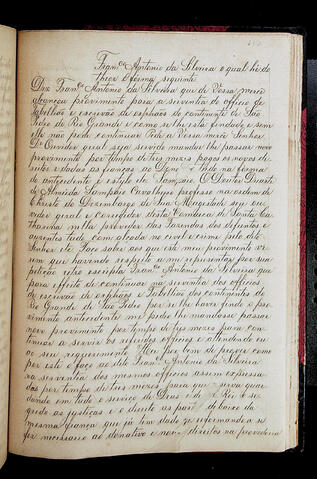 Franco Antonio da Silveira o qual he do
theor e forma seguinte
Diz Franco Antonio da Silveira que de Vossa merce
alcançou provimento para a serventia do officio de
Tabelliam e escrivão de orphãos do continente de São
Pedro do Rio Grande e como se lhe está findado e sem
elle não pode continuar Pede a Vossa merce Senhor
Dr Ouvidor geral seja servido mandar lhe passar novo
provimento por tempo de tres mezes pagos os novos de
reitos e dadas as fianças do Dono Pede na forma
do antecedente e estylo de Sampaio O Doutor Duarte
de Almeida Sampaio Cavalleiro professo na ordem de
Christo do Dezembargo de Sua Magestade seu ou
vidor geral e corregedor desta Comarca de Santa Ca
tharina nella provedor das Fazendas dos defuntos e
auzentes tudo com alçada no civel e crime pelo dito
Senhor etc Faço saber aos que este meu provimento vi
rem que havendo respeito a me reprezentar por sua
petição retro escripta Franco Antonio da Silveira que
para effeito de continuar na serventia dos officios
de escrivão de orphãos e Tabellião dos continentes do
Rio Grande de São Pedro por se lhe haver findo o pro
vimento antecedente me pedio lhe mandasse passar
novo provimento por tempo de tres mezes para con
tinuar a servir os referidos officios e attendendo eu
ao seu requerimento Hei por bem de prover como
por este o faço ao dito Franco Antonio da Silveira
na serventia dos mesmos officios assim expressa
dos por tempo de tres mezes para que sirva guar
dando em tudo o serviço de Deus e de El Rei e se
guedo as justiças e o direito as partes debaixo da
mesma fiança que já tem dado reformando a se
for necessario ao donativo e novos direitos na provedoria